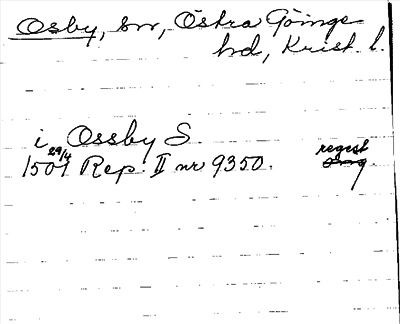 Osby, sn, Östra Göinge
hd, Krist. l.
i Ossby S.
1507 29/4 Rep. II nr 9350. regest